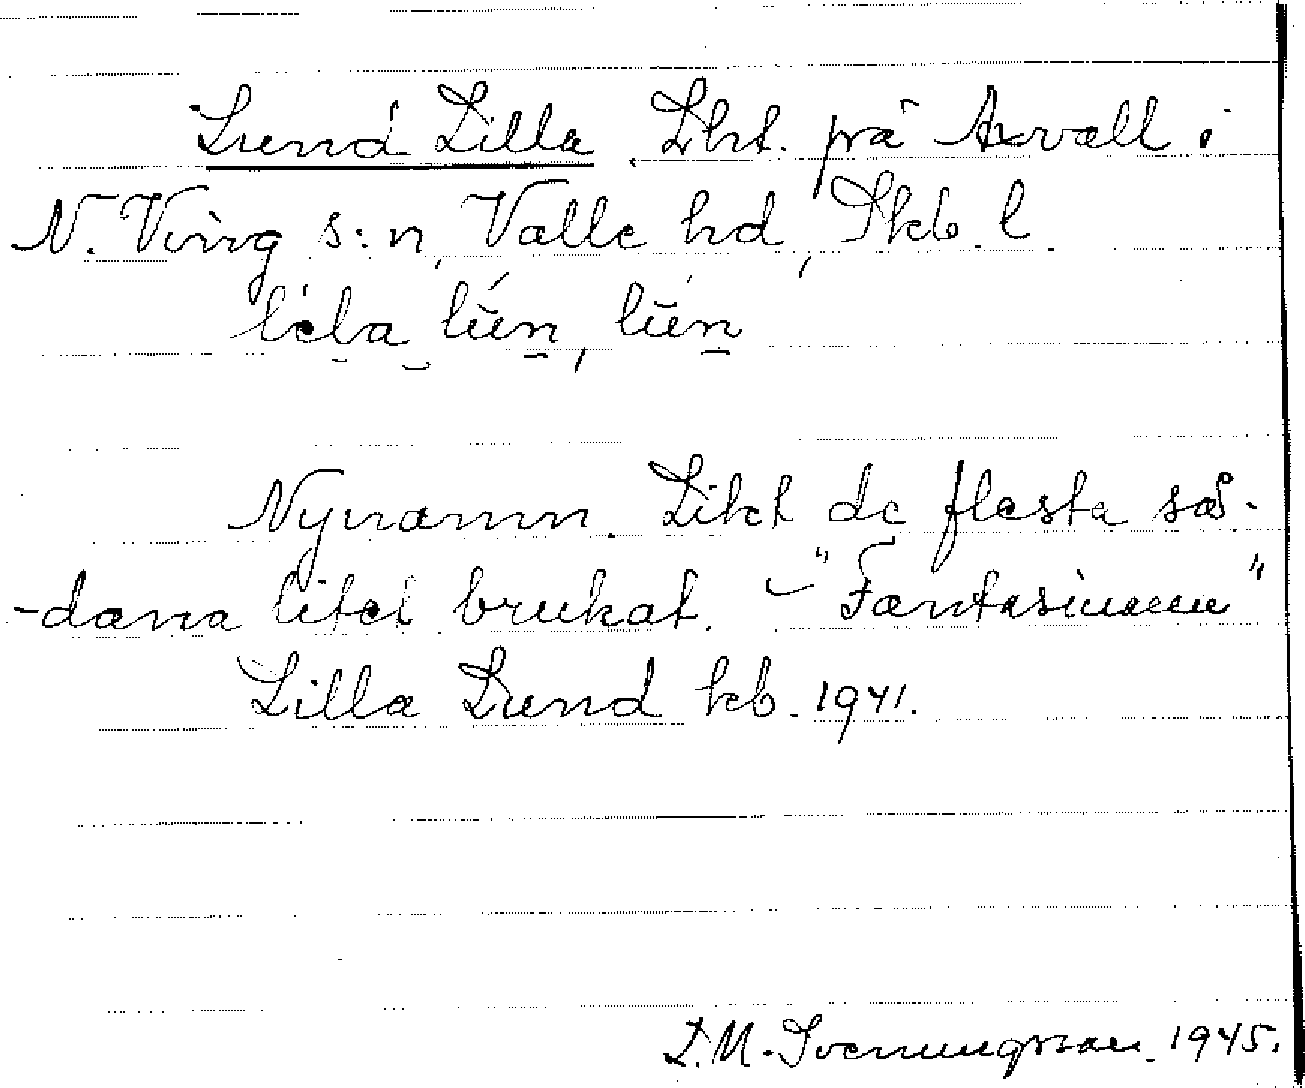 Lund Lilla. Lht. på Axvall i
N. Ving s:n, Valle hd, Skb. l.
Nynamn. Likt de flesta så-
-dana litet brukat. – "Fantasinamn"
Lilla Lund kb. 1941.
L.M. Svenungsson 1945.